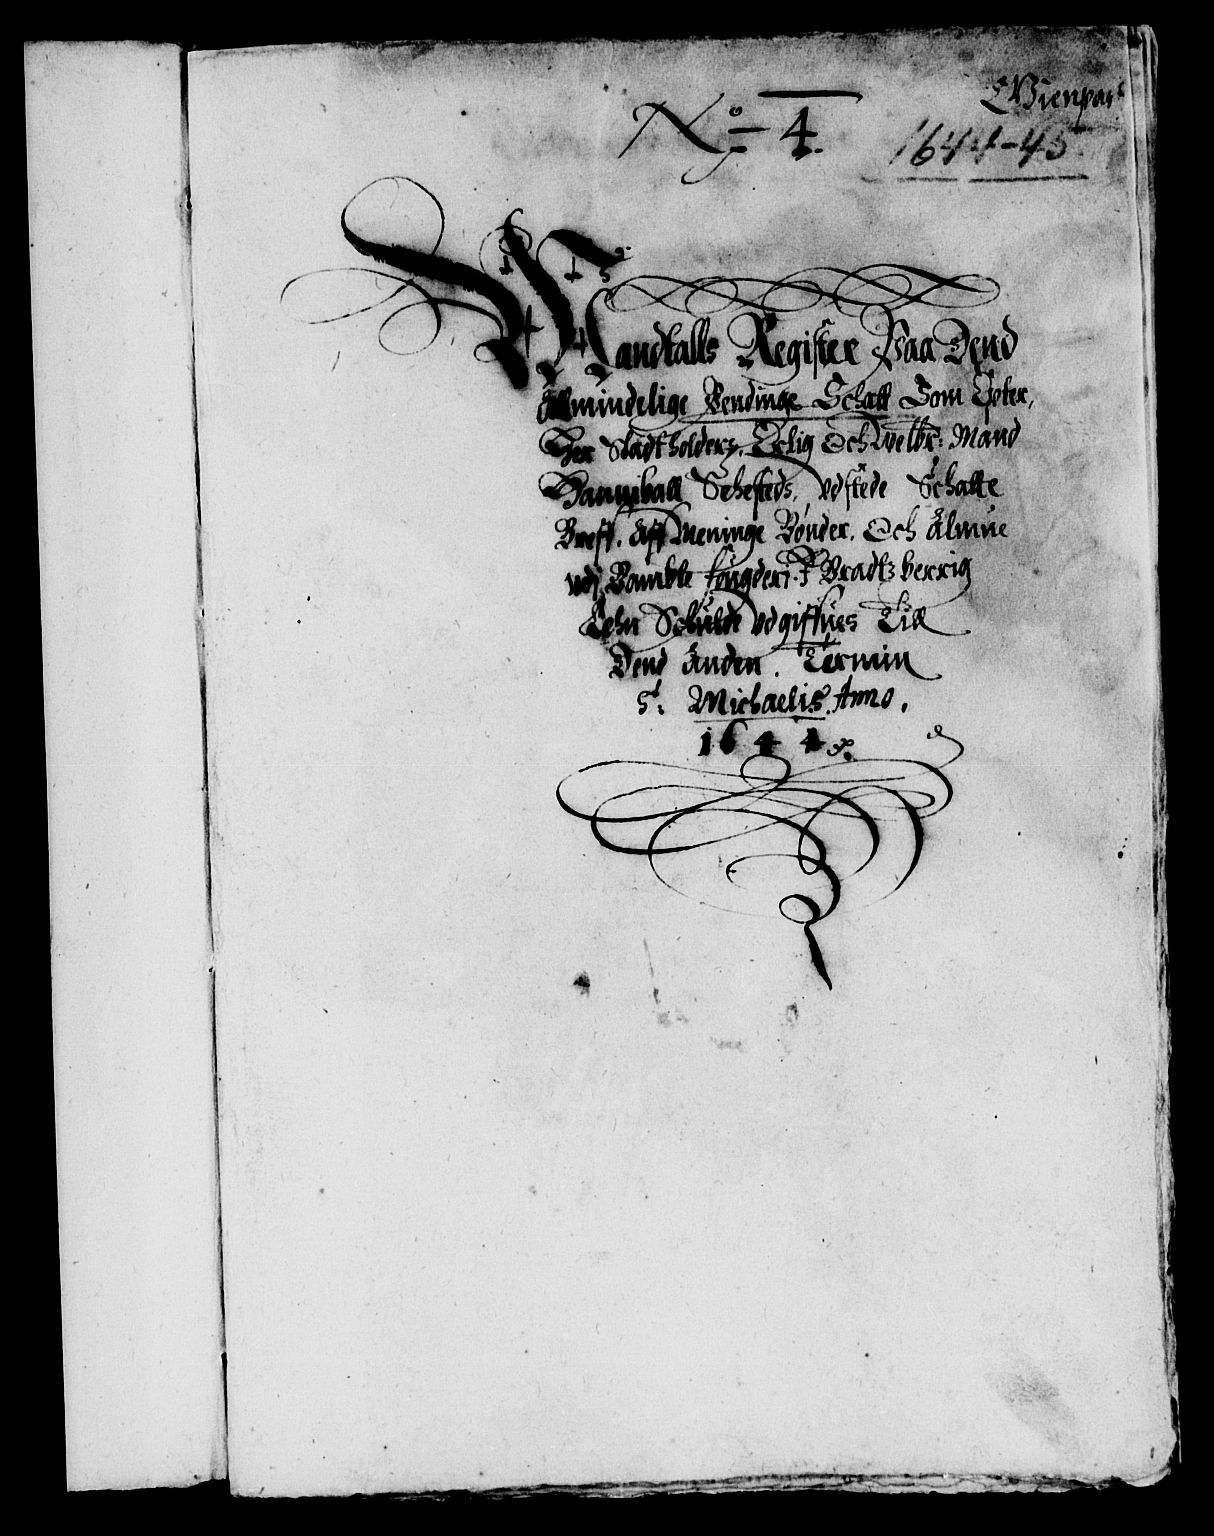 Gienpart
No 4.
1644-45
Mandtalls Register Paa Dend
Allmindelige Pendinge Schatt Som Epter,
Her Stadtholders, Erlig Och Welbr: Mand
Hanniball Sehesteds, Vdstede Schatte
Breff, Aff Meninge Bønder, Och Almue
vdj Bamble fougderj. J Bradtzberrig
Lehn Schulde Vdgiffues Till
Dend Anden. Termin
St: Michaelis. Anno,
1644.